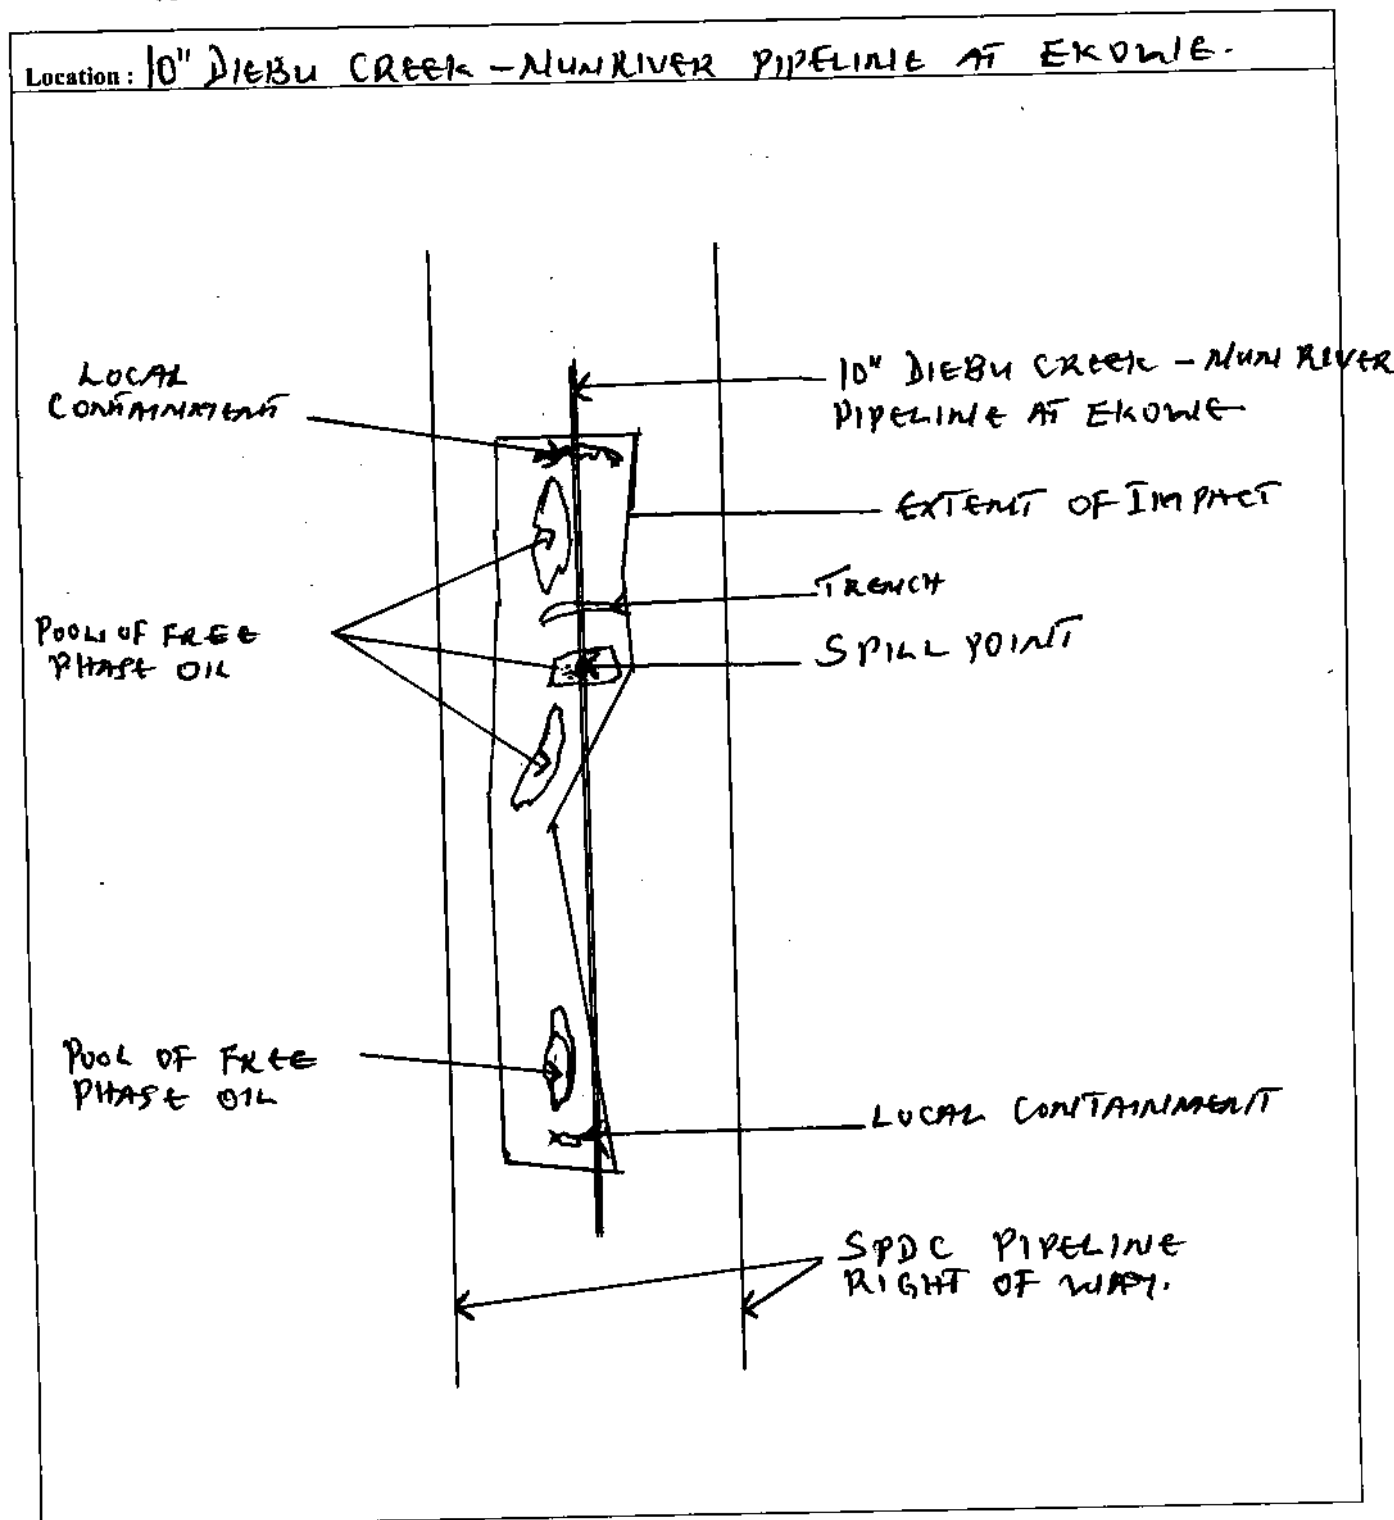 Location: 10" DIEBU CREEK - NUN RIVER PIPELINE AT EKOWE.
LOCAL
CONTAINMENT
10" DIEBU CREEK - NUN RIVER
PIPELINE AT EKOWE
EXTENT OF IMPACT
TRENCH
SPILL POINT
POOL OF FREE
PHASE OIL
POOL OF FREE
PHASE OIL
LOCAL CONTAINMENT
SPDC PIPELINE
RIGHT OF WAY.